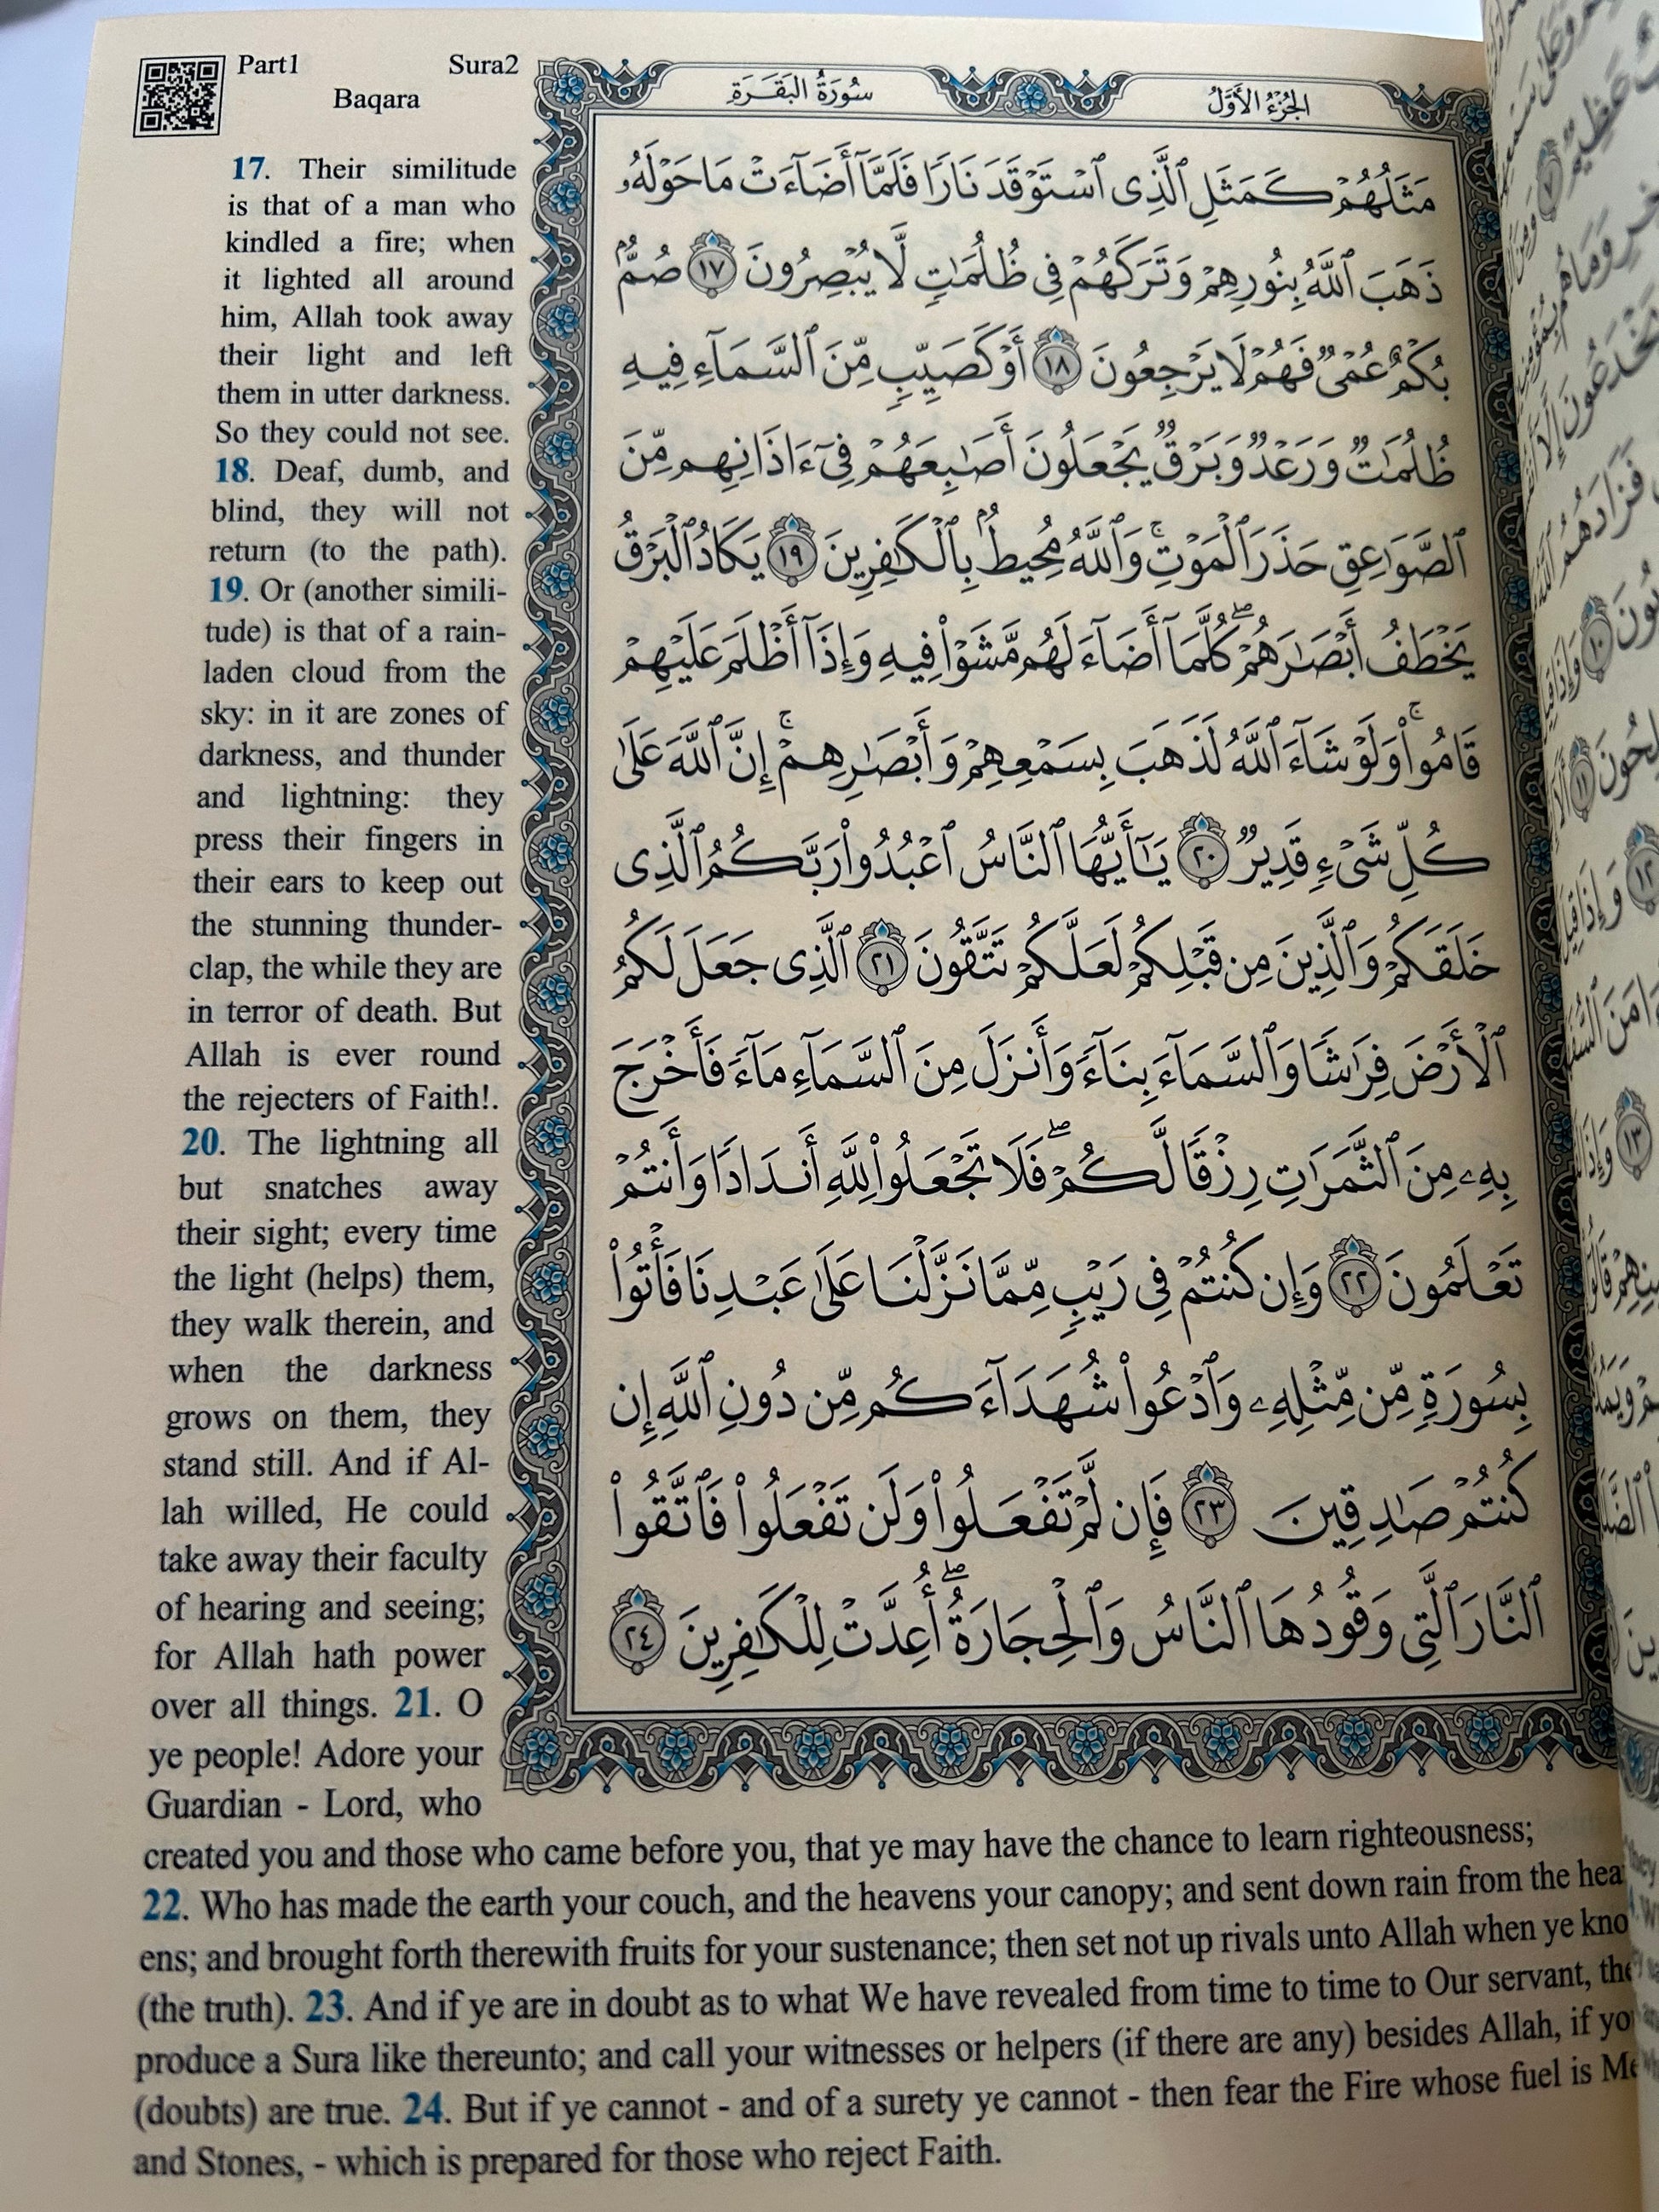 Part1 Sura2
Baqara
سُورَةُ البَقَرَةِ
الجُزْءُ الأَوَّلُ
17. Their similitude
is that of a man who
kindled a fire; when
it lighted all around
him, Allah took away
their light and left
them in utter darkness.
So they could not see.
18. Deaf, dumb, and
blind, they will not
return (to the path).
19. Or (another simili-
tude) is that of a rain-
laden cloud from the
sky: in it are zones of
darkness, and thunder
and lightning: they
press their fingers in
their ears to keep out
the stunning thunder-
clap, the while they are
in terror of death. But
Allah is ever round
the rejecters of Faith!.
20. The lightning all
but snatches away
their sight; every time
the light (helps) them,
they walk therein, and
when the darkness
grows on them, they
stand still. And if Al-
lah willed, He could
take away their faculty
of hearing and seeing;
for Allah hath power
over all things. 21. O
ye people! Adore your
Guardian - Lord, who
created you and those who came before you, that ye may have the chance to learn righteousness;
22. Who has made the earth your couch, and the heavens your canopy; and sent down rain from the hea
ens; and brought forth therewith fruits for your sustenance; then set not up rivals unto Allah when ye kno
(the truth). 23. And if ye are in doubt as to what We have revealed from time to time to Our servant, the
produce a Sura like thereunto; and call your witnesses or helpers (if there are any) besides Allah, if yo
(doubts) are true. 24. But if ye cannot - and of a surety ye cannot - then fear the Fire whose fuel is Me
and Stones, - which is prepared for those who reject Faith.
مَثَلُهُمْ كَمَثَلِ ٱلَّذِى ٱسْتَوْقَدَ نَارًا فَلَمَّآ أَضَآءَتْ مَا حَوْلَهُۥ
ذَهَبَ ٱللَّهُ بِنُورِهِمْ وَتَرَكَهُمْ فِى ظُلُمَٰتٍ لَّا يُبْصِرُونَ ١٧ صُمٌّۢ
بُكْمٌ عُمْىٌ فَهُمْ لَا يَرْجِعُونَ ١٨ أَوْ كَصَيِّبٍ مِّنَ ٱلسَّمَآءِ فِيهِ
ظُلُمَٰتٌ وَرَعْدٌ وَبَرْقٌ يَجْعَلُونَ أَصَٰبِعَهُمْ فِىٓ ءَاذَانِهِم مِّنَ
ٱلصَّوَٰعِقِ حَذَرَ ٱلْمَوْتِ ۚ وَٱللَّهُ مُحِيطٌۢ بِٱلْكَٰفِرِينَ ١٩ يَكَادُ ٱلْبَرْقُ
يَخْطَفُ أَبْصَٰرَهُمْ ۖ كُلَّمَآ أَضَآءَ لَهُم مَّشَوْا۟ فِيهِ وَإِذَآ أَظْلَمَ عَلَيْهِمْ
قَامُوا۟ ۚ وَلَوْ شَآءَ ٱللَّهُ لَذَهَبَ بِسَمْعِهِمْ وَأَبْصَٰرِهِمْ ۚ إِنَّ ٱللَّهَ عَلَىٰ
كُلِّ شَىْءٍ قَدِيرٌ ٢٠ يَٰٓأَيُّهَا ٱلنَّاسُ ٱعْبُدُوا۟ رَبَّكُمُ ٱلَّذِى
خَلَقَكُمْ وَٱلَّذِينَ مِن قَبْلِكُمْ لَعَلَّكُمْ تَتَّقُونَ ٢١ ٱلَّذِى جَعَلَ لَكُمُ
ٱلْأَرْضَ فِرَٰشًا وَٱلسَّمَآءَ بِنَآءً وَأَنزَلَ مِنَ ٱلسَّمَآءِ مَآءً فَأَخْرَجَ
بِهِۦ مِنَ ٱلثَّمَرَٰتِ رِزْقًا لَّكُمْ ۖ فَلَا تَجْعَلُوا۟ لِلَّهِ أَندَادًا وَأَنتُمْ
تَعْلَمُونَ ٢٢ وَإِن كُنتُمْ فِى رَيْبٍ مِّمَّا نَزَّلْنَا عَلَىٰ عَبْدِنَا فَأْتُوا۟
بِسُورَةٍ مِّن مِّثْلِهِۦ وَٱدْعُوا۟ شُهَدَآءَكُم مِّن دُونِ ٱللَّهِ إِن
كُنتُمْ صَٰدِقِينَ ٢٣ فَإِن لَّمْ تَفْعَلُوا۟ وَلَن تَفْعَلُوا۟ فَٱتَّقُوا۟
ٱلنَّارَ ٱلَّتِى وَقُودُهَا ٱلنَّاسُ وَٱلْحِجَارَةُ ۖ أُعِدَّتْ لِلْكَٰفِرِينَ ٢٤